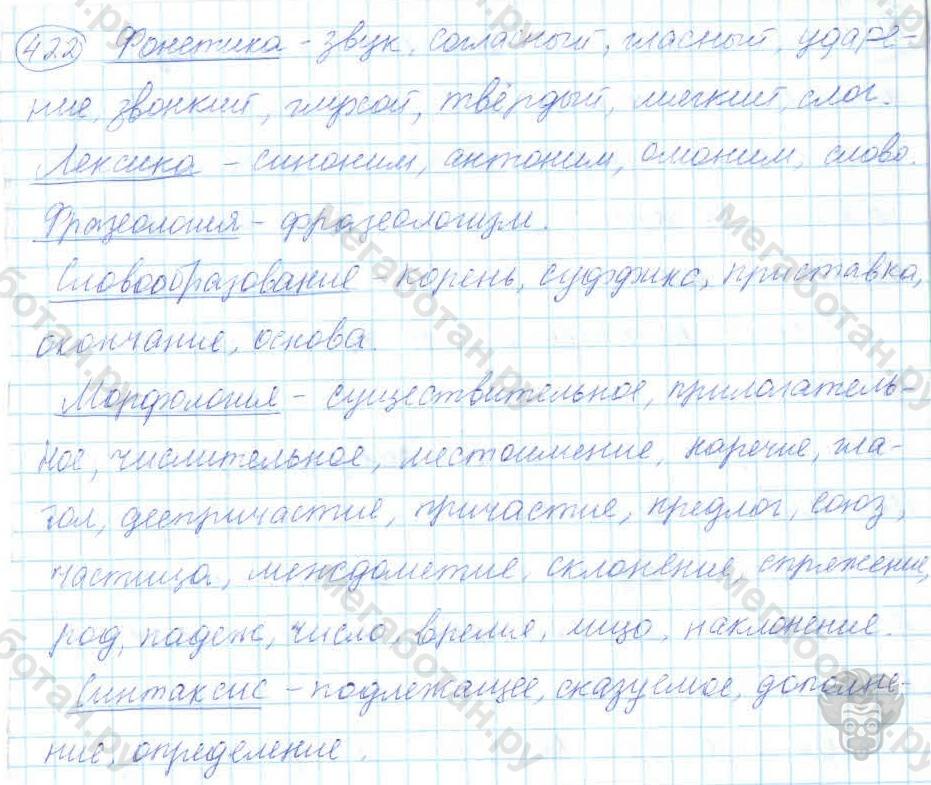 422 Фонетика - звук, согласный, гласный, ударе-
ние, звонкий, глухой, твёрдый, мягкий, слог.
Лексика - синоним, антоним, омоним, слово.
Фразеология - фразеологизм.
Словообразование корень, суффикс, приставка,
окончание, основа.
Морфология - существительное, прилагатель-
ное, числительное, местоимение, наречие, гла-
гол, деепричастие, причастие, предлог, союз,
частица, междометие, склонение, спряжение,
род, падеж, число, время, лицо, наклонение.
Синтаксис - подлежащее, сказуемое, дополне-
ние, определение.
мегаботан.ру
мегаботан.ру
мегаботан.ру
мегаботан.ру